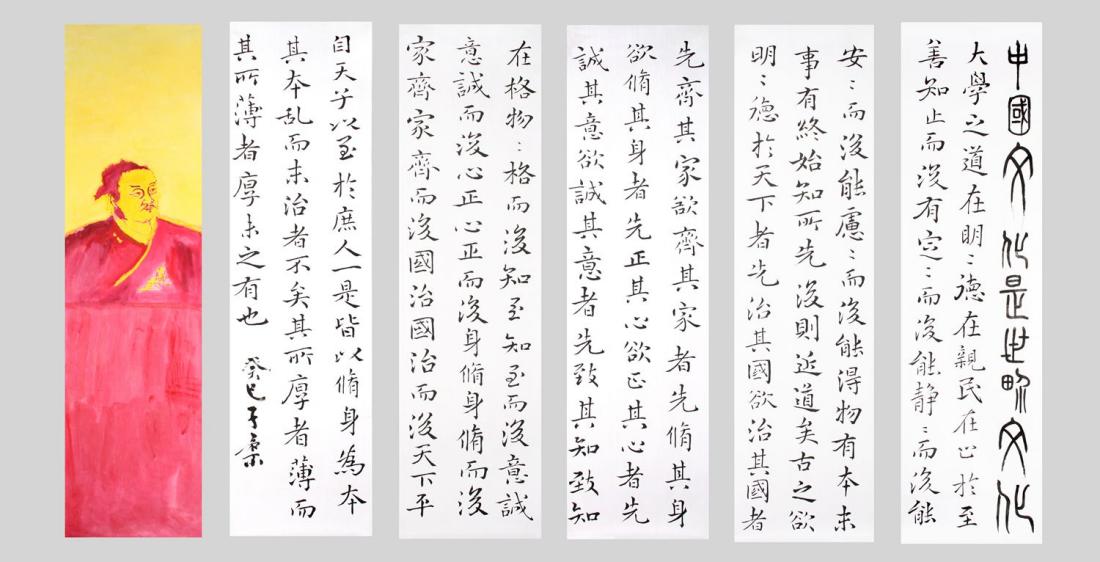 中國文化是世界文化
大學之道在明〻德在親民在止於至
善知止而後有定〻而後能静〻而後能
安〻而後能慮〻而後能得物有本末
事有終始知所先後則近道矣古之欲
明〻德於天下者先治其國欲治其國者
先齊其家欲齊其家者先脩其身
欲脩其身者先正其心欲正其心者先
誠其意欲誠其意者先致其知致知
在格物〻格而後知至知至而後意誠
意誠而後心正心正而後身脩身脩而後
家齊家齊而後國治國治而後天下平
自天子以至於庶人一是皆以脩身為本
其本乱而末治者不矣其所厚者薄而
其所薄者厚未之有也
癸巳子